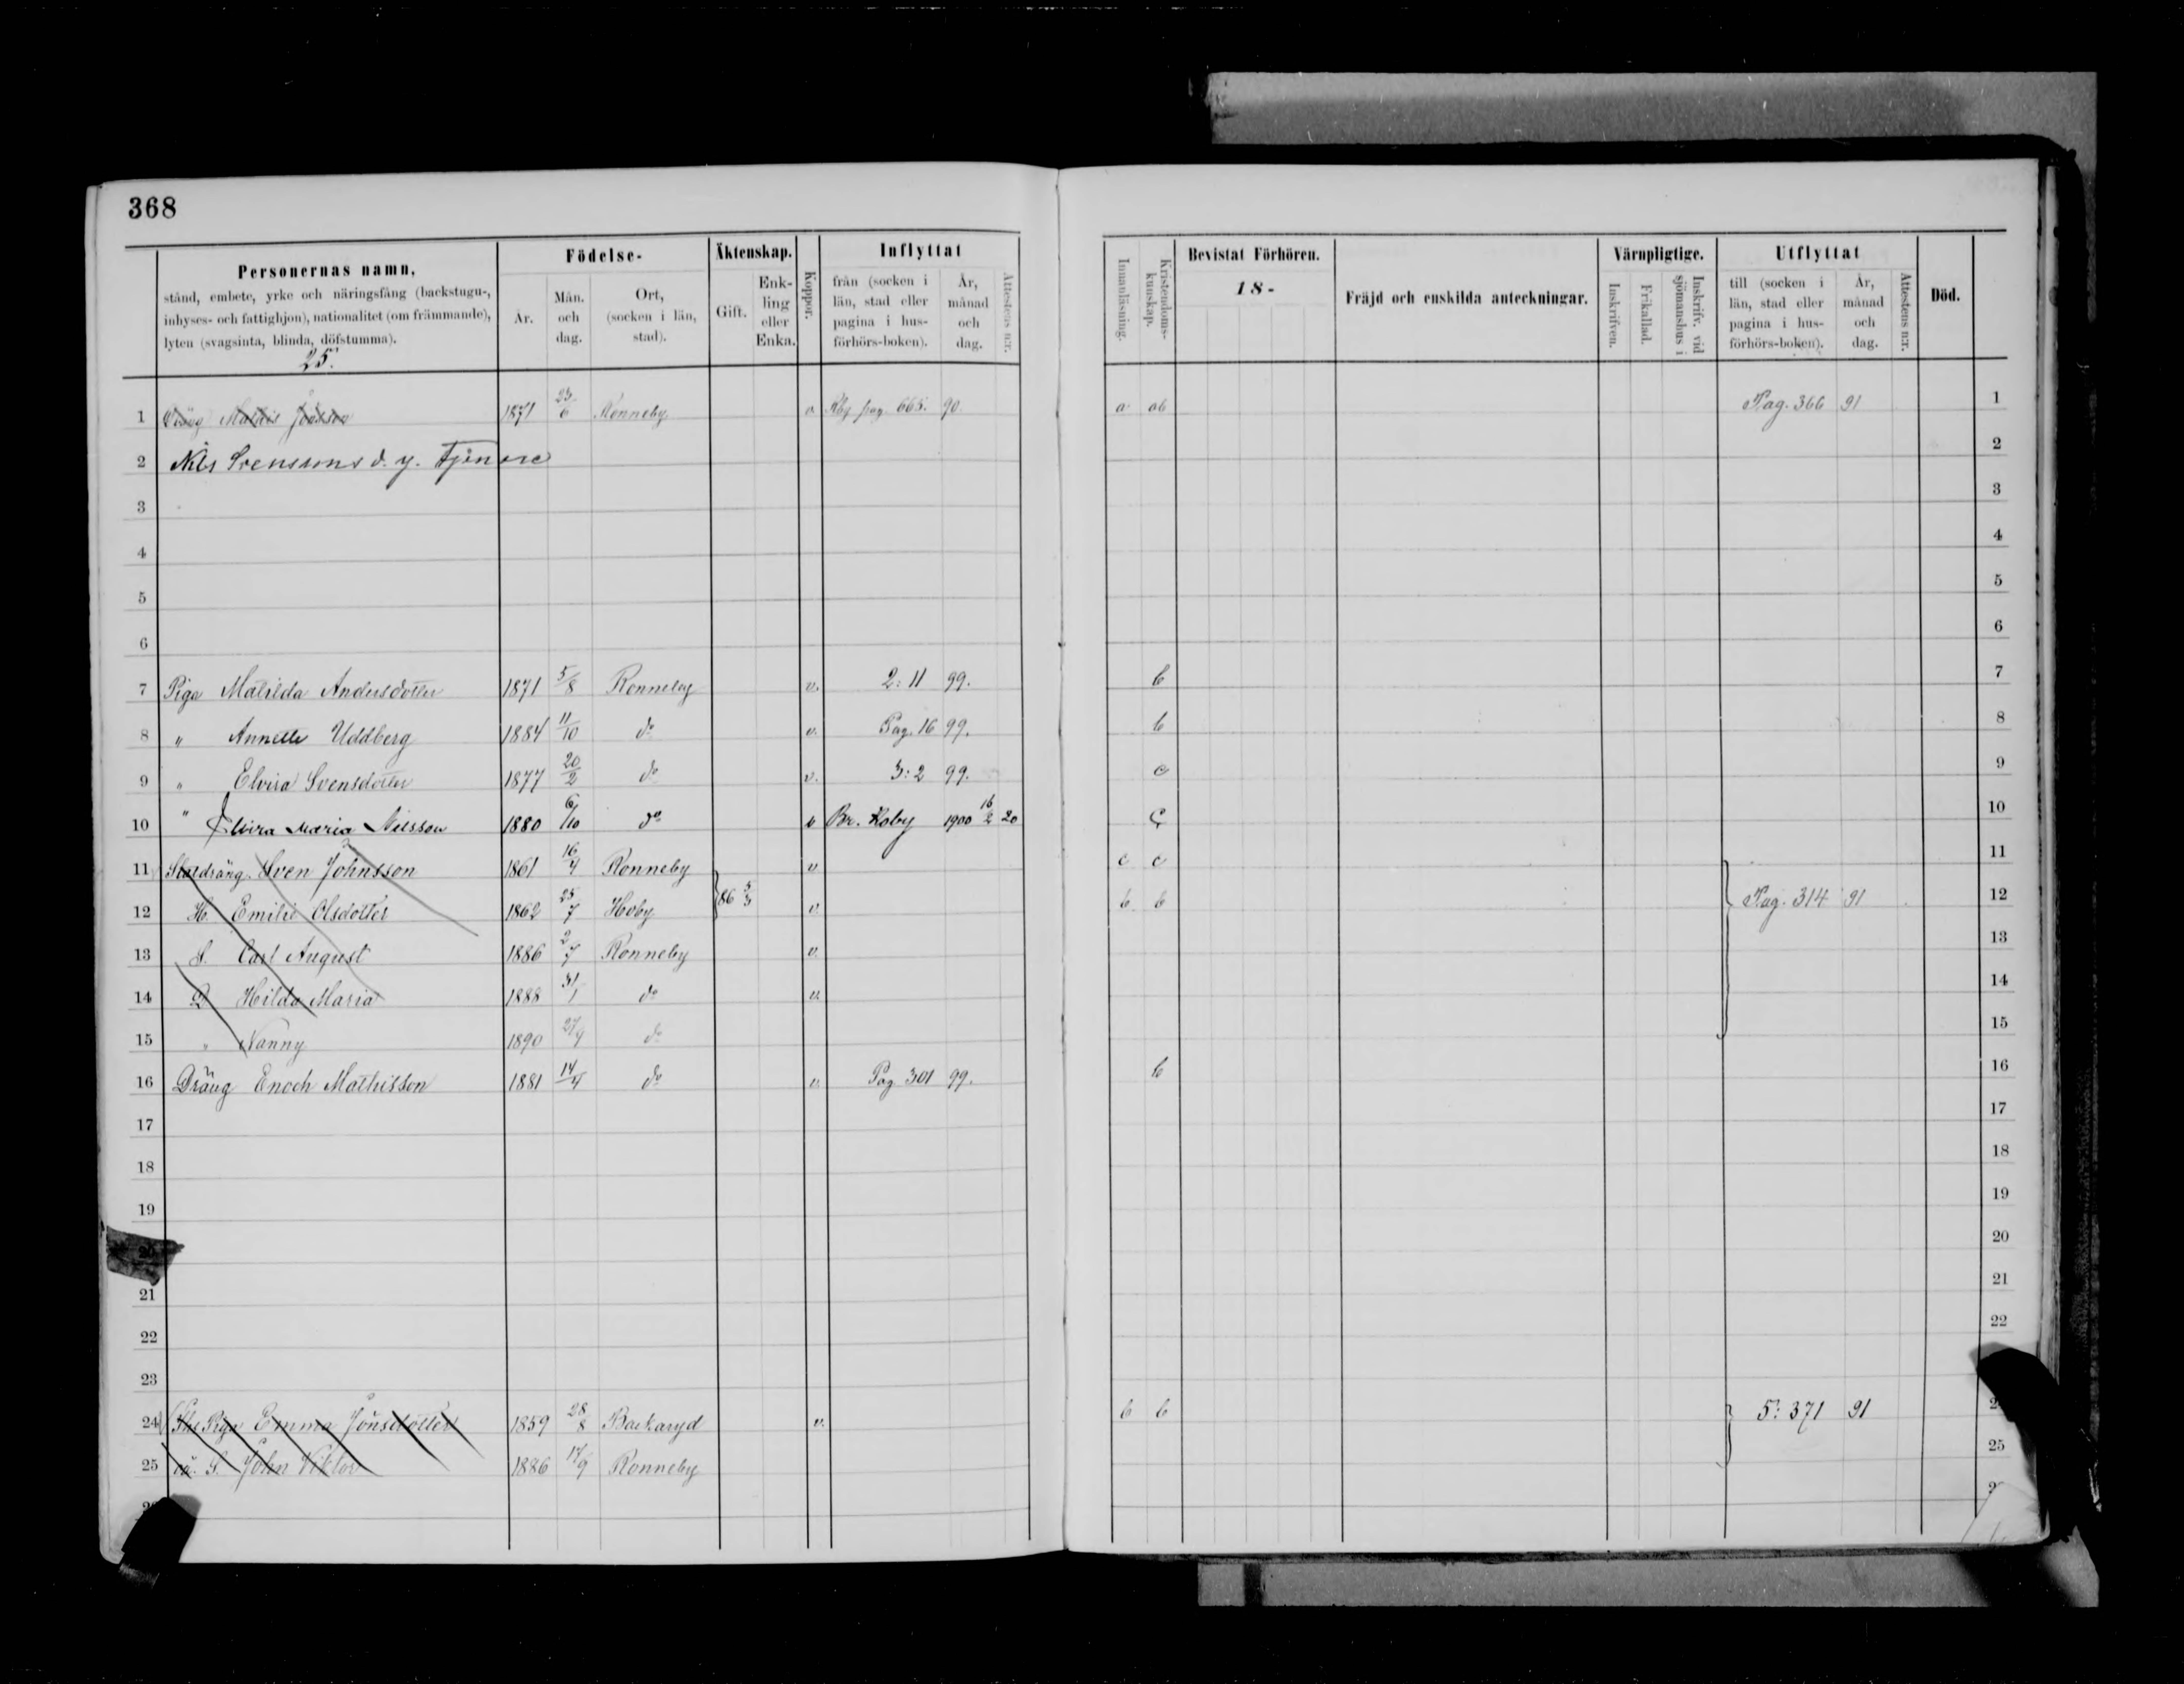 368
Personernas namn,
stånd, embete, yrke och näringsfång (backstugu-,
inhyses- och fattighjon), nationalitet (om främmande),
lyten (svagsinta, blinda, döfstumma).
25.
Födelse-
År.
Mån. och dag.
Ort, (socken i län, stad).
Äktenskap.
Gift.
Enk-ling eller Enka.
Koppor.
Inflyttat
från (socken i län, stad eller pagina i hus-förhörs-boken).
År, månad och dag.
Attestens n:r.
Innanläsning.
Kristendoms-kunskap.
Bevistat Förhören.
18-
Fräjd och enskilda anteckningar.
Värnpligtige.
Inskrifven.
Frikallad.
Inskrifv. vid sjömanshus i
Utflyttat
till (socken i län, stad eller pagina i hus-förhörs-boken).
År, månad och dag.
Attestens n:r.
Död.
1 Dräng Mathis Jönsson 1871 23/6 Ronneby v. Rby pag 665. 90 a ab Pag. 366 91 1
2 Nils Svenssons d. y. Tjenare 2
3 3
4 4
5 5
6 6
7 Piga Matilda Andersdotter 1871 5/8 Ronneby v. 2: 11 99. b 7
8 " Annette Uddberg 1884 11/10 do v. Pag. 16 99. b 8
9 " Elvira Svensdotter 1877 20/2 do v. 3: 2 99. c 9
10 " Elvira Maria Nilsson 1880 6/10 do v Br. Hoby 1900 16/2 20 c 10
11 Statdräng Sven Johnsson 1861 16/4 Ronneby v c c 11
12 H. Emilie Olsdotter 1862 25/7 Hoby 86 5/3 v. b b Pag. 314 91 12
13 S. Carl August 1886 2/7 Ronneby v. 13
14 D Hilda Maria 1888 31/1 do v. 14
15 " Nanny 1890 27/4 do 15
16 Dräng Enoch Mathisson 1881 14/4 do v. Pag 301 99. b 16
17 17
18 18
19 19
20 20
21 21
22 22
23
24 Piga Emma Jönsdotter 1859 28/8 Backaryd v. b b 5: 371 91
25 oä. S. John Viktor 1886 17/9 Ronneby 25